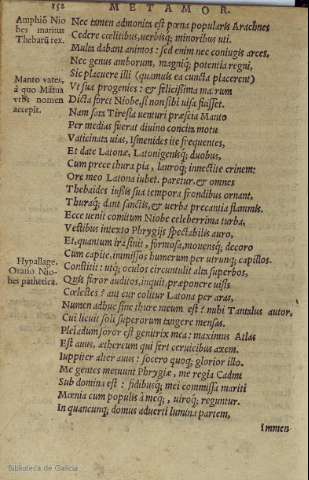 152
METAMOR.
Amphiõ Nio
bes maritus
Thebarũ rex.
Manto vates,
à quo Mãtua
vrbs nomen
accepit.
Hypallage.
Oratio Nio-
bes pathetica.
Nec tamen admonita est pœna popularis Arachnes
Cedere cœlitibus, verbisq; minoribus vti.
Multa dabant animos: sed enim nec coniugis arces,
Nec genus amborum, magniq; potentia regni,
Sic placuere illi (quamuis ea cuncta placerent)
Vt sua progenies: & felicissima matrum
Dicta foret Niobe, si non sibi visa fuisset.
Nam sata Tiresia venturi præscia Manto
Per medias fuerat diuino concita motu
Vaticinata vias, Ismenides ite frequentes,
Et date Latonæ, Latonigenisq; duobus,
Cum prece thura pia, lauroq; innectite crinem:
Ore meo Latona iubet. paretur. & omnes
Thebaides iussis sua tempora frondibus ornant,
Thuraq; dant sanctis, & verba precantia flammis.
Ecce venit comitum Niobe celeberrima turba,
Vestibus intexto Phrygijs spectabilis auro,
Et, quantum ira sinit, formosa, mouensq; decoro
Cum capite, immissos humerum per vtrunq; capillos.
Constitit: vtq; oculos circuntulit alta superbos,
Quis furor auditos, inquit, præponere visis
Cœlestes? aut cur colitur Latona per aras,
Numen adhuc sine thure meum est? mihi Tantalus autor,
Cui licuit soli superorum tangere mensas.
Pleiadum soror est genitrix mea: maximus Atlas
Est auus, æthereum qui fert ceruicibus axem.
Iuppiter alter auus: socero quoq; glorior illo.
Me gentes metuunt Phrygiæ, me regia Cadmi
Sub domina est: fidibusq; mei commissa mariti
Mœnia cum populis à meq;, viroq; reguntur.
In quancunq; domus aduerti lumina partem,
immen
Biblioteca de Galicia